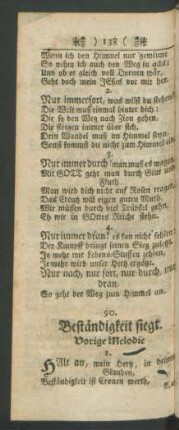 ) 138 (
Wenn ich den Himmel nur gewinne
So nehm ich auch den Weg in acht:
Und ob er gleich voll Dornen wär,
Geht doch mein JEsus vor mir her.
2.
Nur immerfort, was wilst du stehen?
Die Welt muß einmal hinter dich:
Die so den Weg nach Zion gehen,
Die steigen immer über sich.
Dein Wandel muß im Himmel seyn,
Sonst kommst du nicht zum Himmel
3.
Nur immer durch! man muß es wagen
Mit GOTT geht man durch Glut und
Fluth
Man wird dich nicht auf Rosen tragen,
Das Creutz will eigen guten Muth.
Wir müssen durch viel Trübsal gehn,
Eh wir in GOttes Reiche stehn.
4.
Nur immer dran! es kan nicht fehlen
Der Kampff bringt seinen Sieg zuletzt.
Je mehr wir Lebens-Stuffen zehlen,
Je mehr wird unser Hertz ergötzt.
Nur nach, nur fort, nur durch, nur
dran,
So geht der Weg zum Himmel an.
90.
Beständigkeit siegt.
Vorige Melodie
1.
HAlt an, mein Hertz, in deinem
Glauben,
Beständigkeit ist Cronen werth,